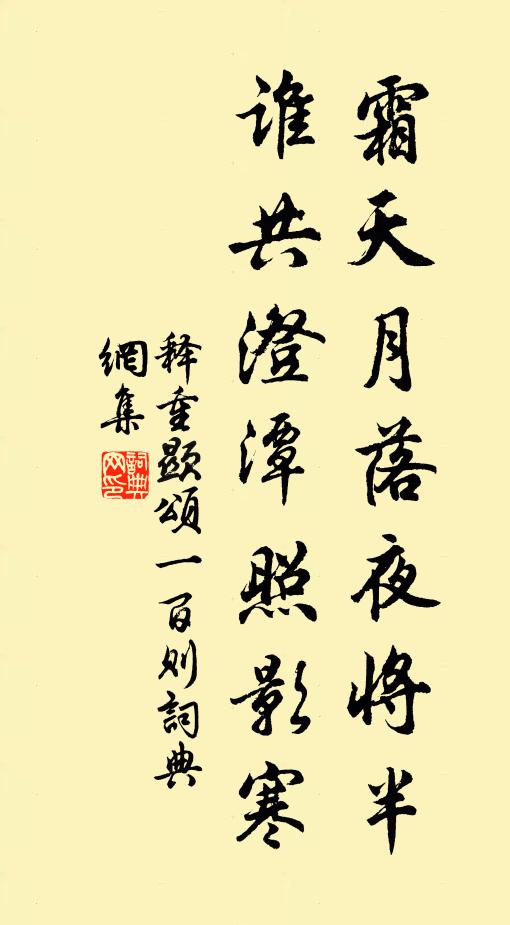 霜天月落夜将半
誰共澄潭照影寒
释重顯頌一百则詞典
網集
詞典網印